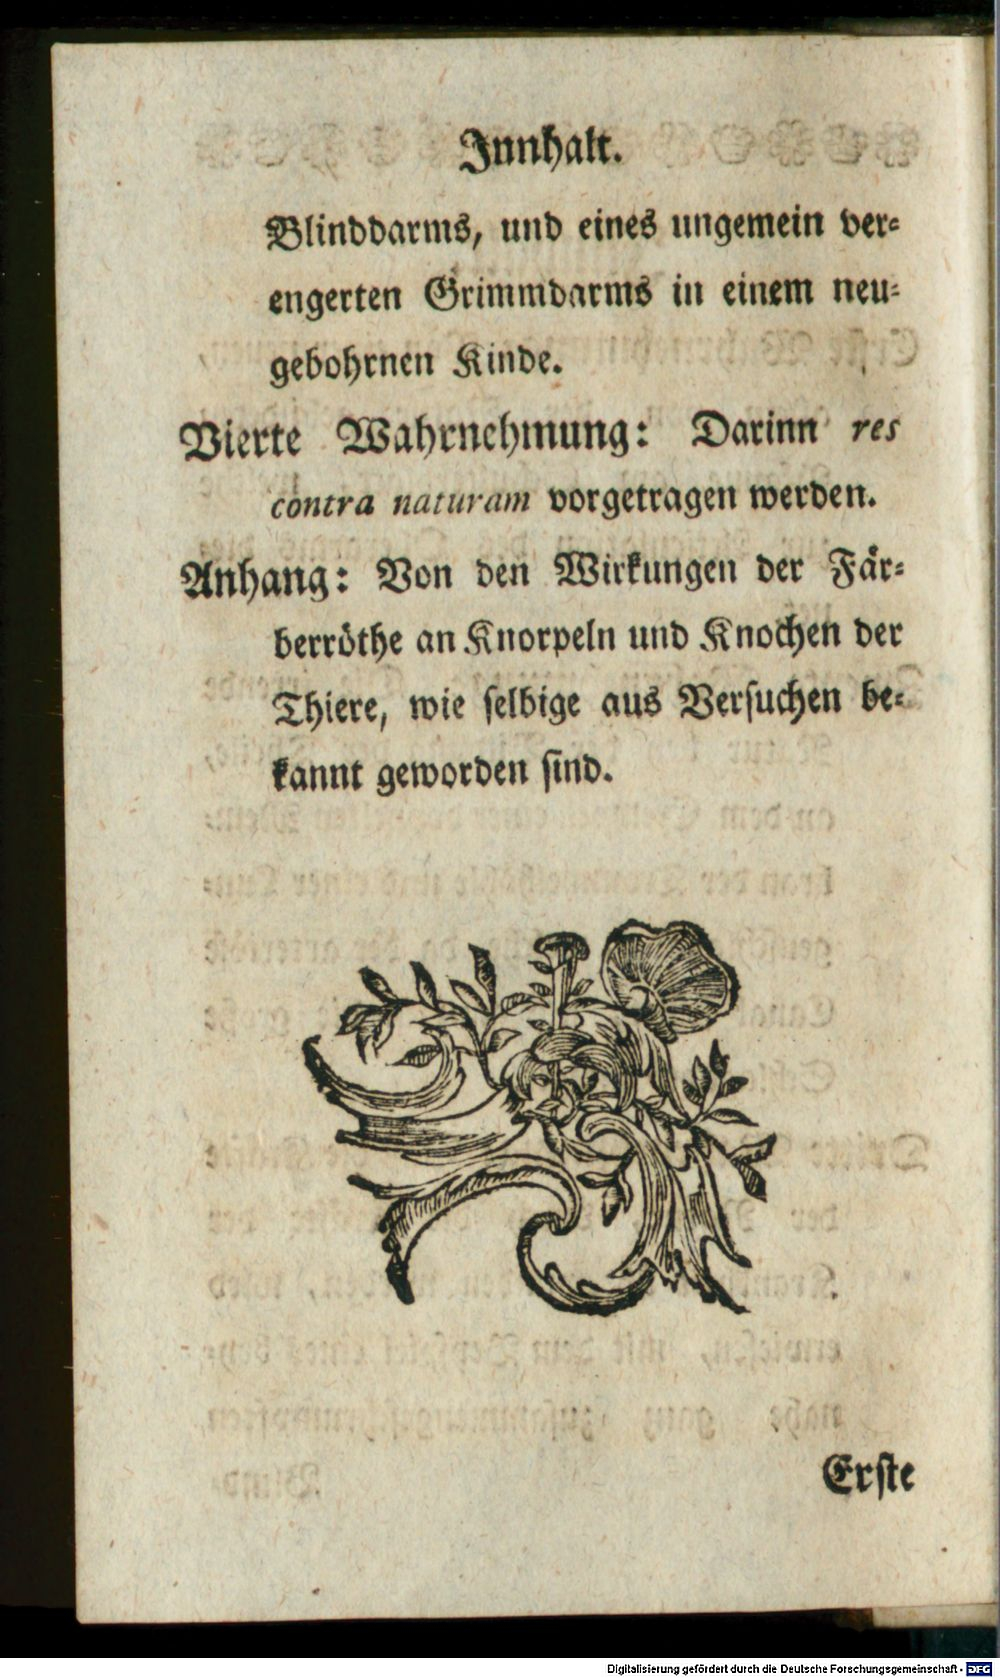 Innhalt.
Blinddarms, und eines ungemein ver-
engerten Grimmdarms in einem neu-
gebohrnen Kinde.
Vierte Wahrnehmung: Darinn res
contra naturam vorgetragen werden.
Anhang: Von den Wirkungen der Fär-
berröthe an Knorpeln und Knochen der
Thiere, wie selbige aus Versuchen be-
kannt geworden sind.
Erste
Digitalisierung gefördert durch die Deutsche Forschungsgemeinschaft - DFG